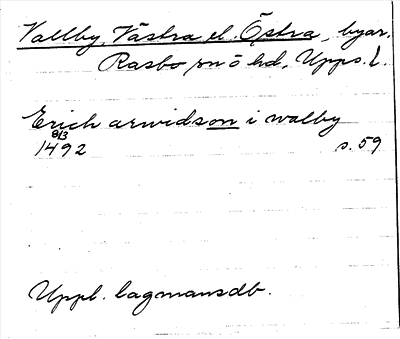 Vallby, Västra el. Östra, byar.
Rasbo sn ö hd, Upps. l.
Erich arwidson i walby
8/3
1492 s. 59
Uppl. lagmansdb.